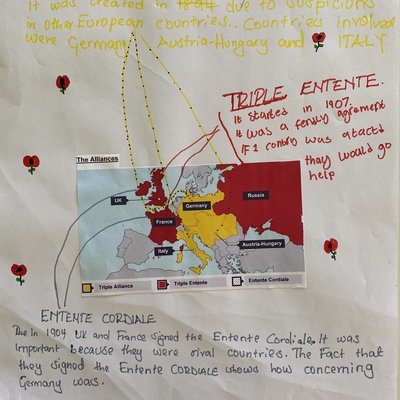 It was created in 1894 due to suspicions
in other European countries.. Countries involved
were Germany, Austria-Hungary and ITALY
TRIPLE ENTENTE.
It started in 1907.
It was a ferndly agreement
IF 1 contry was atactd
they would go
help
The Alliances
UK
Germany
Russia
France
Italy
Austria-Hungary
Triple Alliance
Triple Entente
Entente Cordiale
ENTENTE CORDIALE
The In 1904 UK and France signed the Entente Cordiale. It was
important because they were rival countries. The Fact that
they signed the Entente CORDIALE shows how concerning
Germany was.